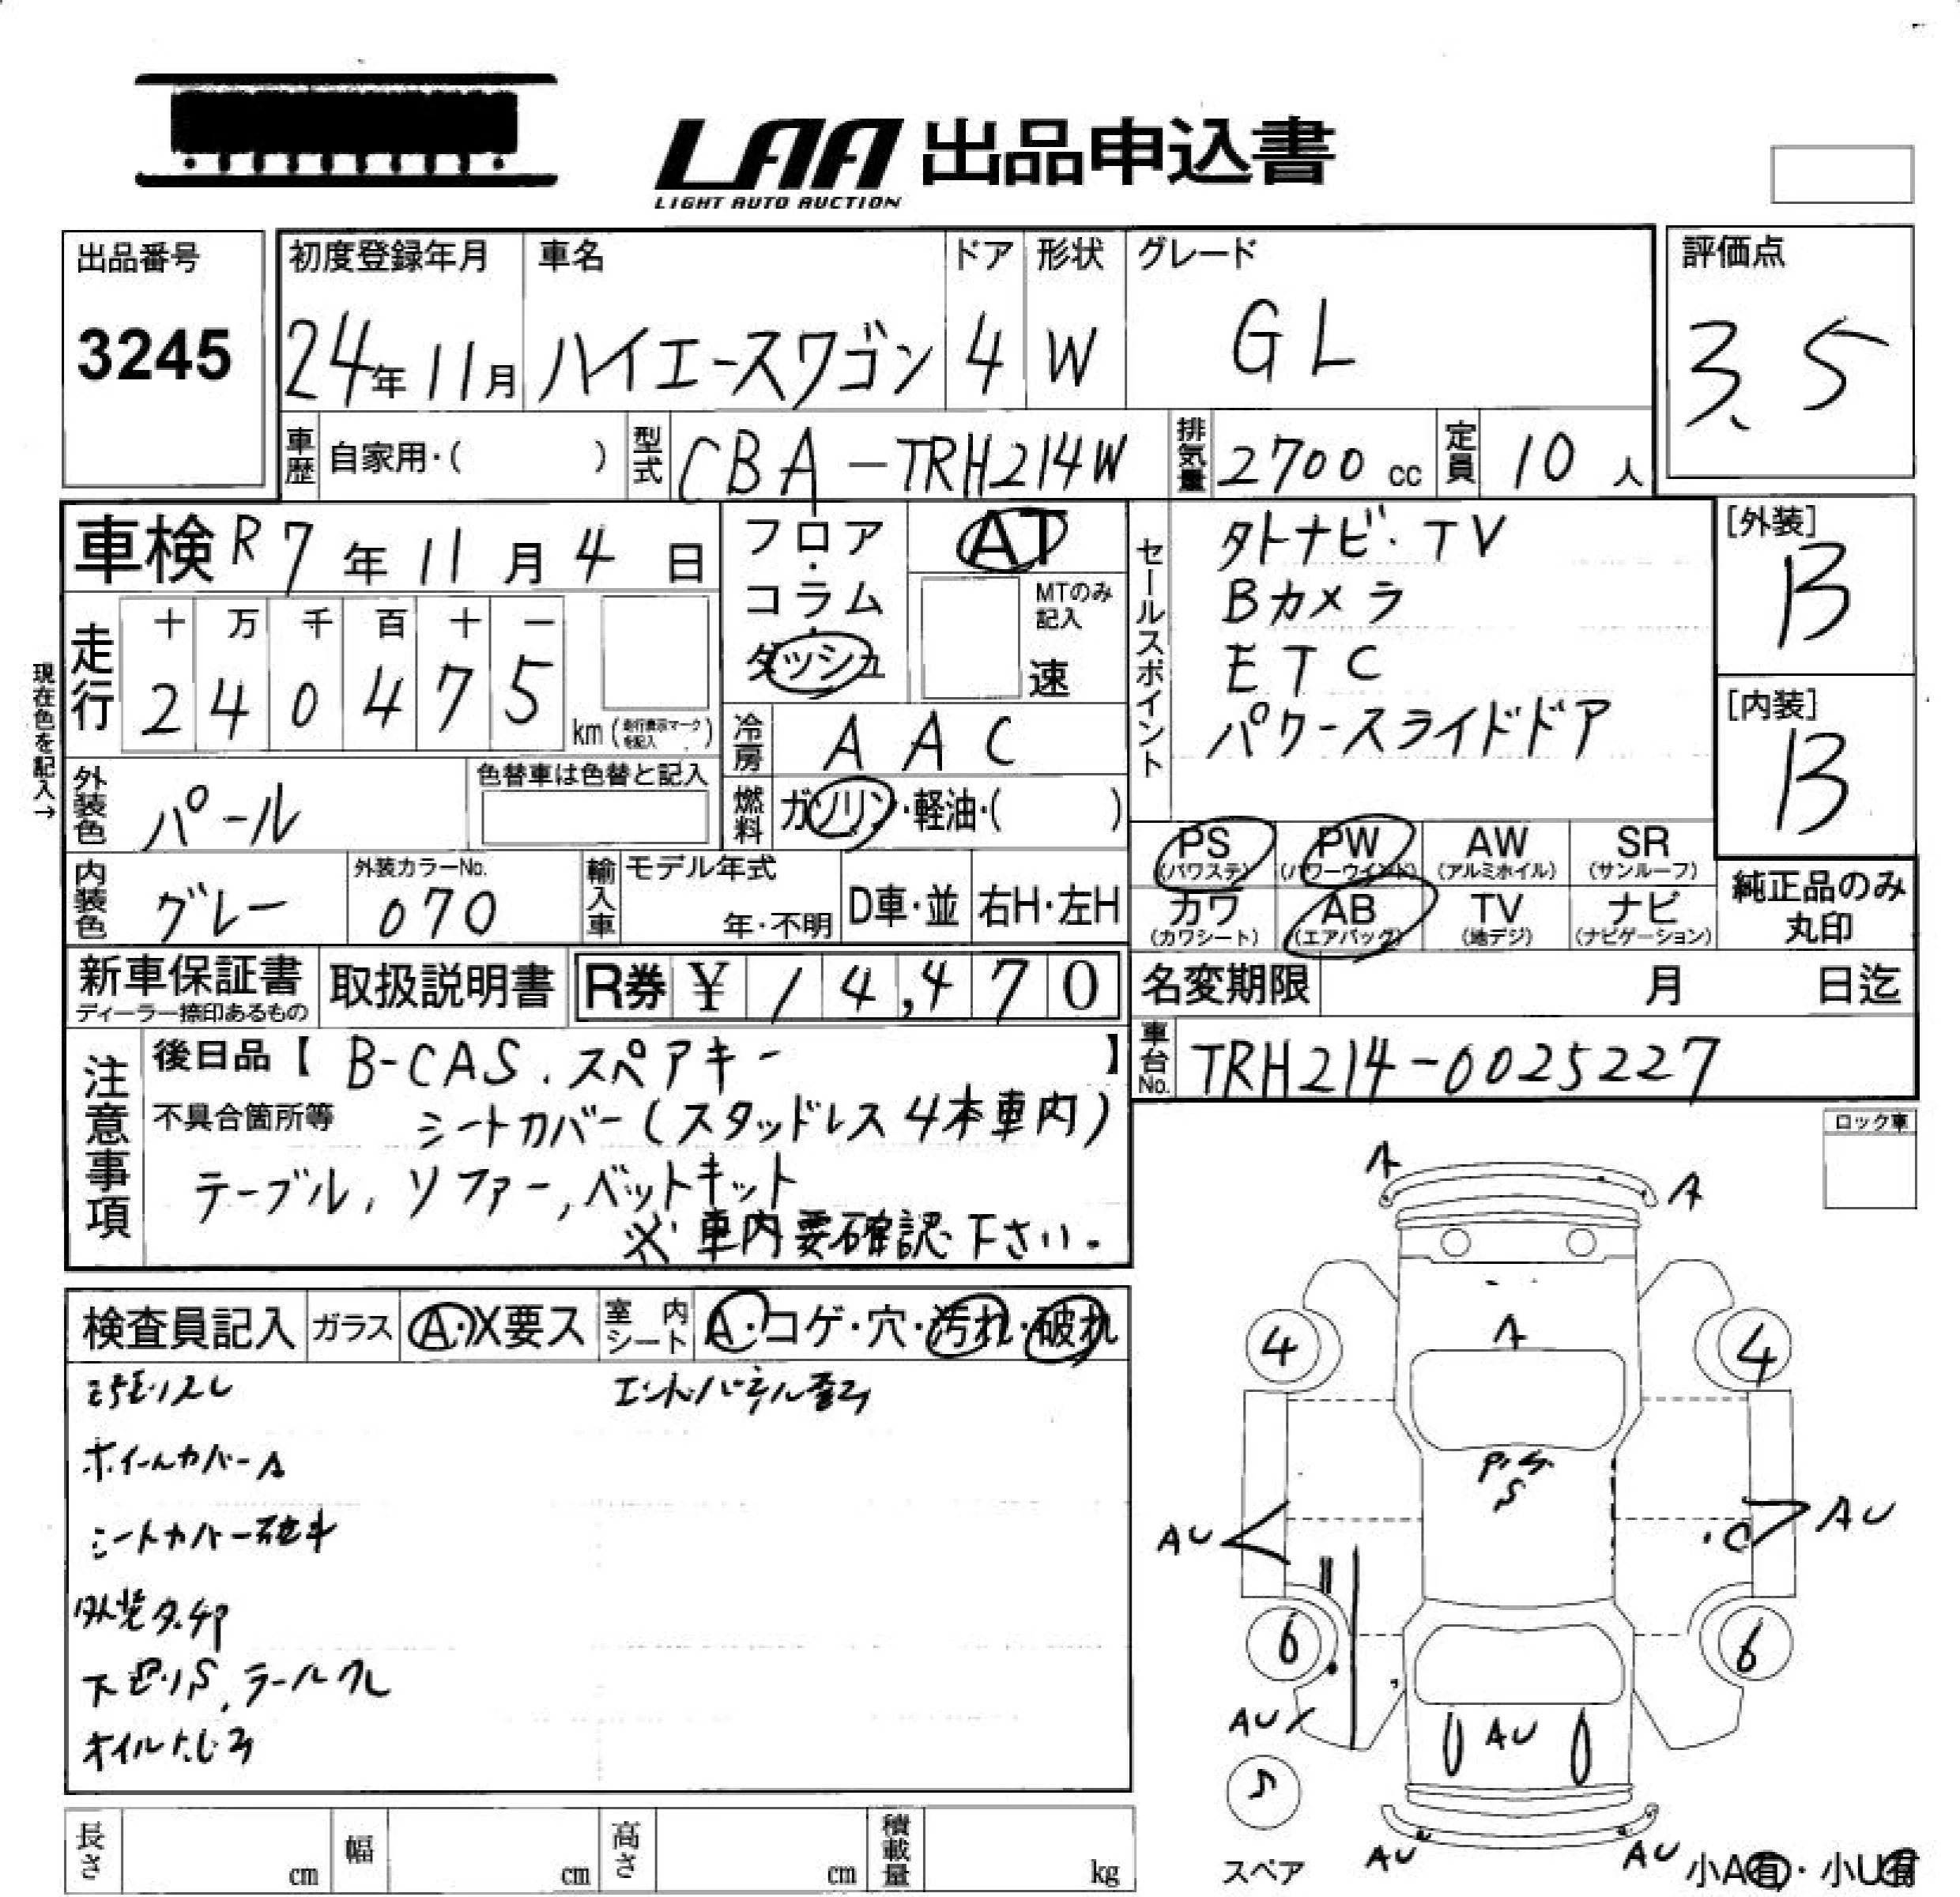 LAA 出品申込書
LIGHT AUTO AUCTION
出品番号
3245
初度登録年月
24年11月
車名
ハイエースワゴン
ドア
4
形状
W
グレード
GL
評価点
3.5
車歴 自家用・( )
型式 CBA-TRH214W
排気量 2700 cc
定員 10 人
車検 R7年11月4日
現在色を記入→
走行
十 万 千 百 十 一
2 4 0 4 7 5
km(走行表示マークを記入)
フロア・コラム・ダッシュ
AT
MTのみ記入
速
冷房 AAC
燃料 ガソリン・軽油・( )
セールスポイント
外ナビ・TV
Bカメラ
ETC
パワースライドドア
[外装]
B
[内装]
B
外装色 パール
色替車は色替と記入
内装色 グレー
外装カラーNo.
070
輸入車
モデル年式
年・不明
D車・並
右H・左H
PS
(パワステ)
PW
(パワーウインド)
AW
(アルミホイル)
SR
(サンルーフ)
カワ
(カワシート)
AB
(エアバッグ)
TV
(地デジ)
ナビ
(ナビゲーション)
純正品のみ
丸印
新車保証書
ディーラー捺印あるもの
取扱説明書
R券 ¥ 14,470
名変期限 月 日迄
車台No. TRH214-0025227
注意事項
後日品【 B-CAS、スペアキー 】
不具合箇所等 シートカバー(スタッドレス4本車内)
テーブル、ソファー、ベットキット
※車内要確認下さい。
ロック車
検査員記入
ガラス A・X要ス
室内シート A・コゲ・穴・汚れ・破れ
ホイールカバーA
シートカバー破れ
オイルにじみ
A
A
A
4
4
S
AU
AU
C
6
6
AU
AU
スペア
AU
AU
小A有・小U有
長さ cm
幅 cm
高さ cm
積載量 kg